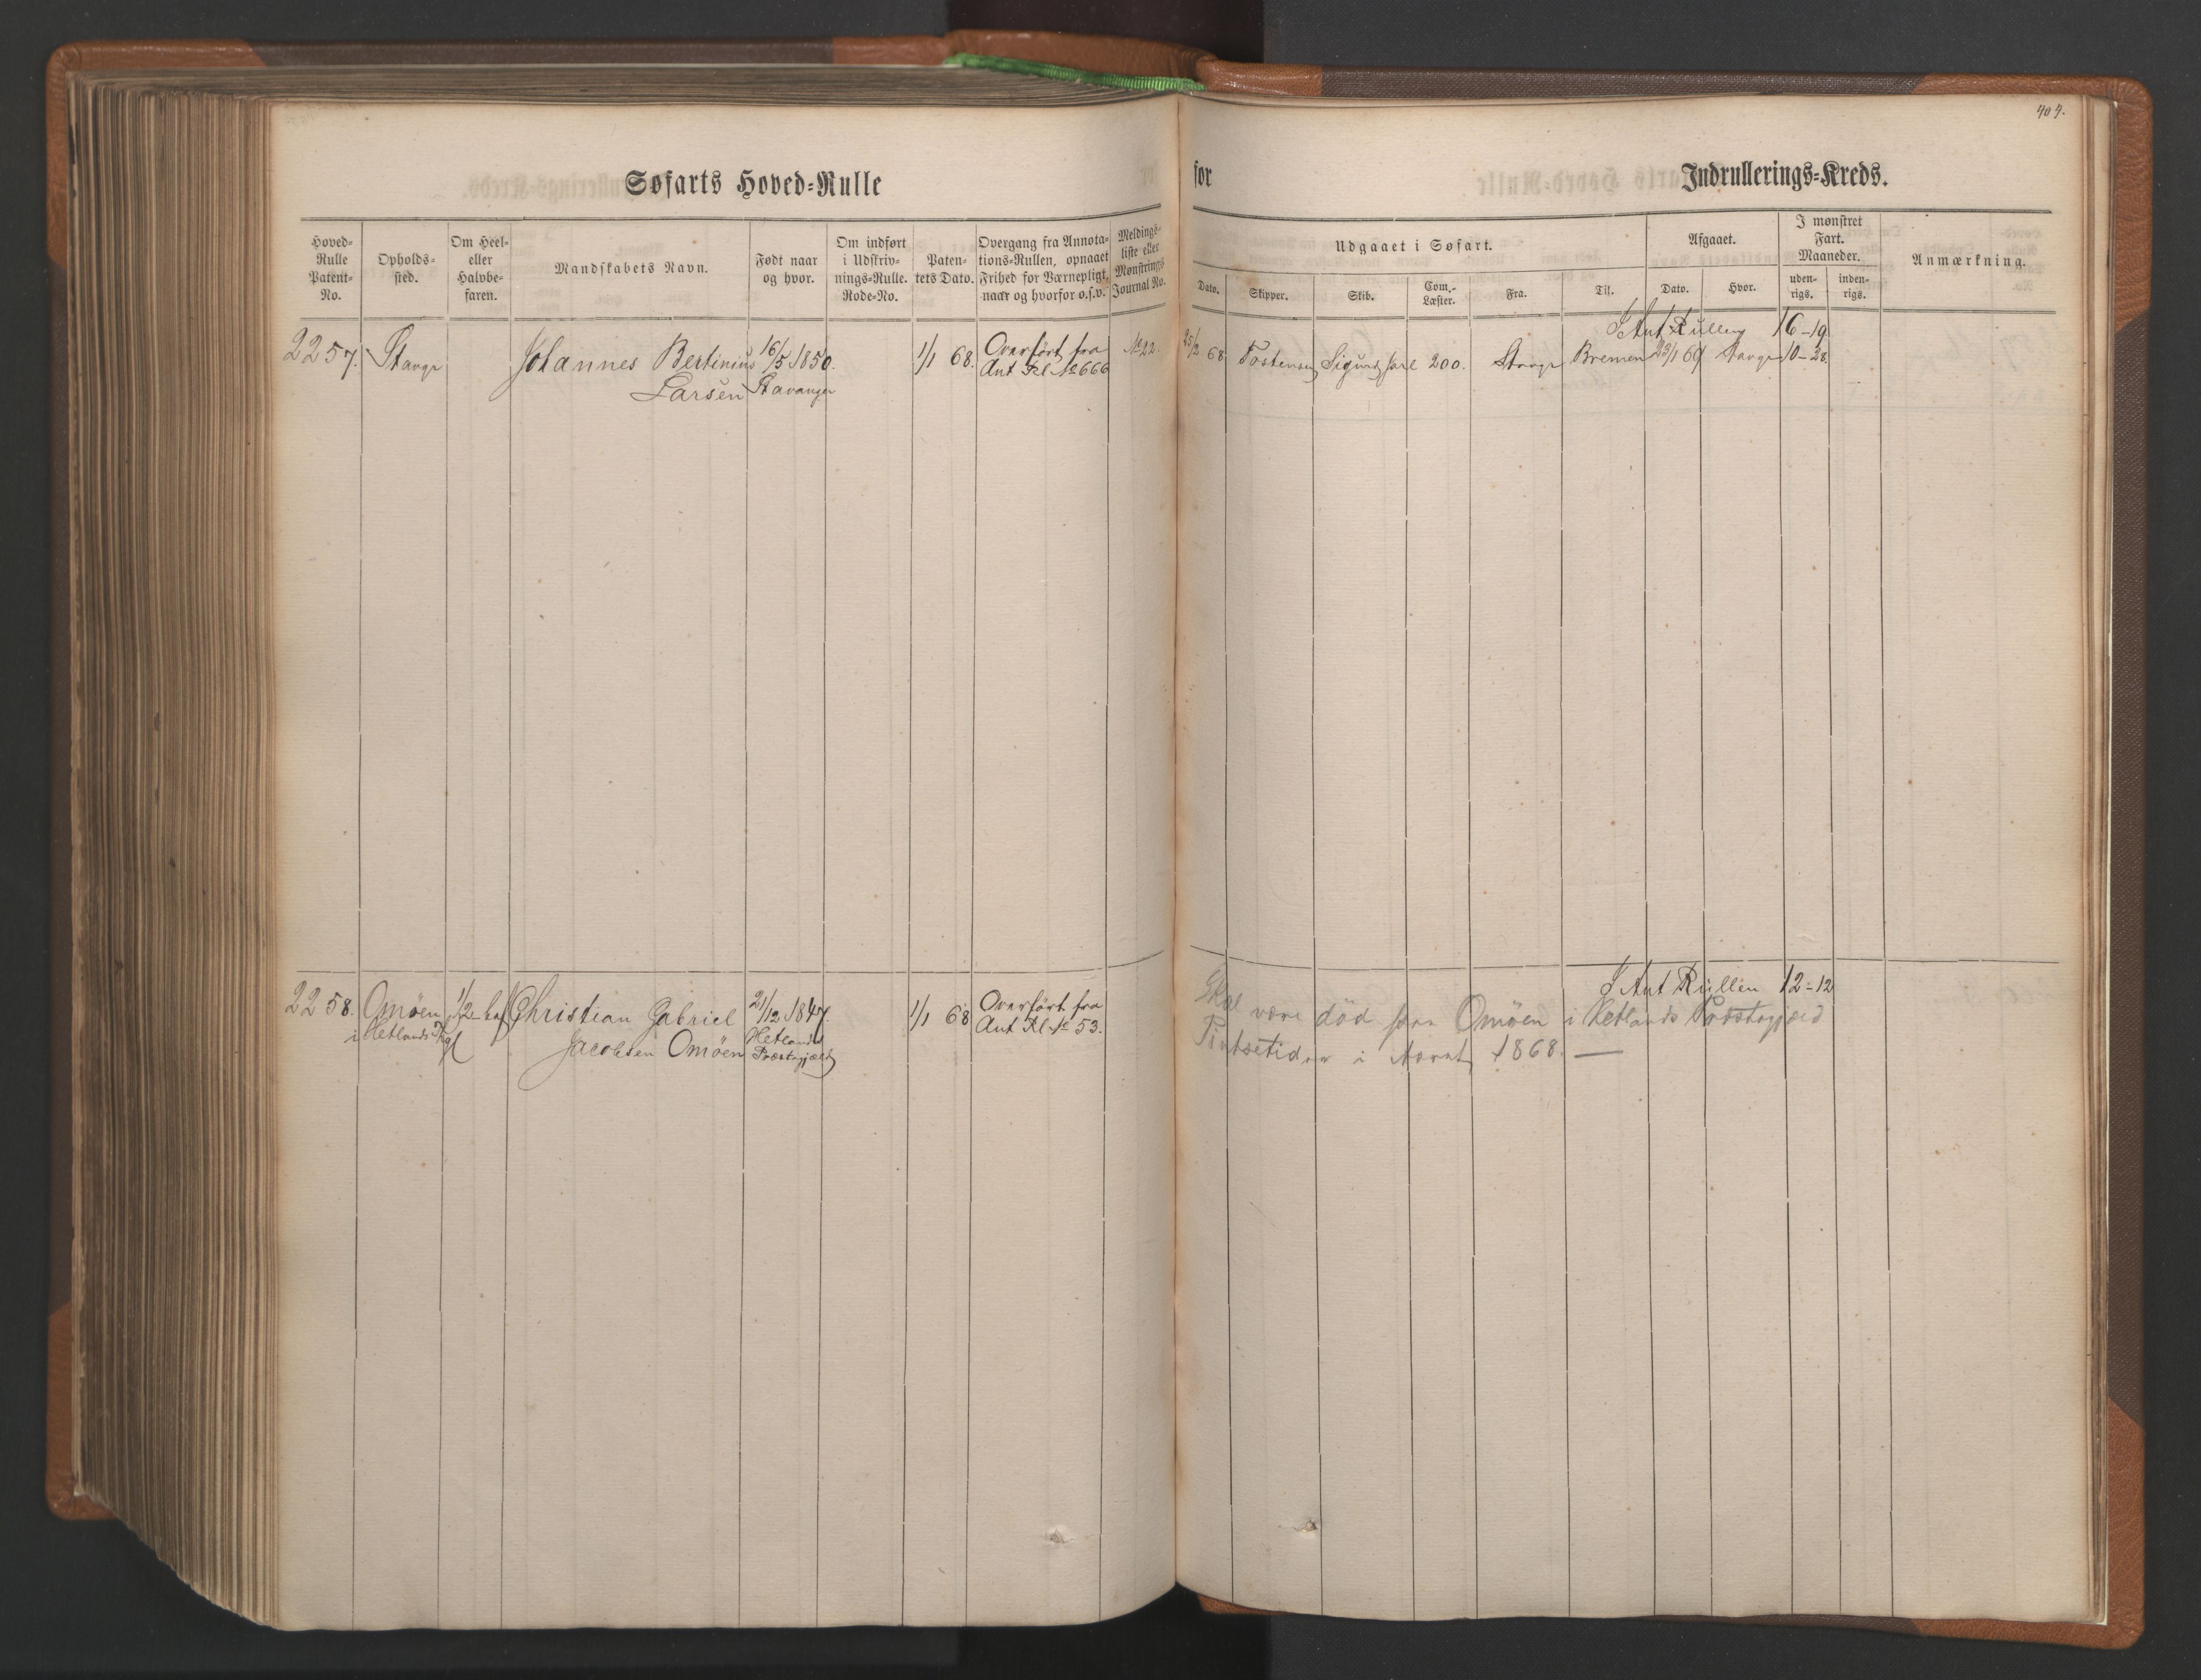 404.
Søfarts Hoved-Rulle for Indrullerings-Kreds.
Hoved-
Rulle
Patent-
No.
Opholds-
sted.
Om Heel-
eller
Halvbe-
faren.
Mandskabets Navn.
Født naar
og hvor.
Om indført
i Udskriv-
nings-Rulle.
Rode-No.
Paten-
tets Dato.
Overgang fra Annota-
tions-Rullen, opnaaet
Frihed for Værnepligt,
naar og hvorfor o.s.v.
Meldings-
liste eller
Mønstrings
Journal No.
Udgaaet i Søfart.
Dato.
Skipper.
Skib.
Com.-
Læster.
Fra.
Til.
Afgaaet.
Dato.
Hvor.
I mønstret
Fart.
Maaneder.
uden-
rigs.
inden-
rigs.
Anmærkning.
I Ant Rullen 16-19
2257. Stavgr Johannes Bertinius 16/5 1850. 1/1 68. Overført fra No 22. 25/2 68 Tostensen Sigurd Jarl 200. Stavgr Bremen 23/1 69 Stavgr 10-28
Larsen Stavanger Ant Rl No 666
I Ant Rullen 12-12
2258. Omøen 1/2 bef Christian Gabriel 21/12 1847. 1/1 68 Overført fra
i Hetlands Pgl Jacobsen Omøen Hetlands Præstegjæld Ant Rl No 53.
Skal være død paa Omøen i Hetlands Præstegjæld
Pintsetiden i Aaret 1868. —